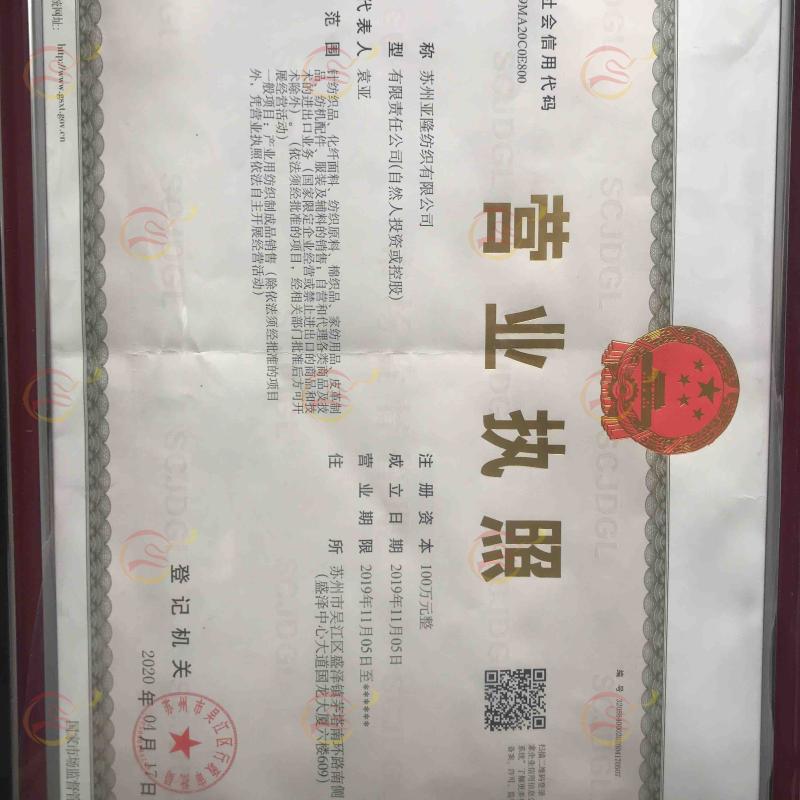 营业执照
社会信用代码
9MA20C0E800
编号
称 苏州亚隆纺织有限公司
型 有限责任公司(自然人投资或控股)
代表人 袁亚
范围 针纺织品、化纤面料、纺织原料、棉织品、家纺用品、皮革制
品、纺机配件、服装及辅料的销售;自营和代理各类商品及技
术的进出口业务(国家限定企业经营或禁止进出口的商品和技
术除外)。(依法须经批准的项目,经相关部门批准后方可开
展经营活动)
一般项目:产业用纺织制成品销售(除依法须经批准的项目
外,凭营业执照依法自主开展经营活动)
注册资本 100万元整
成立日期 2019年11月05日
营业期限 2019年11月05日至******
住所 苏州市吴江区盛泽镇茅塔南环路南侧
(盛泽中心大道国龙大厦六楼609)
登记机关
2020年04月17日
http://www.gsxt.gov.cn
国家市场监督管
SCJDGL